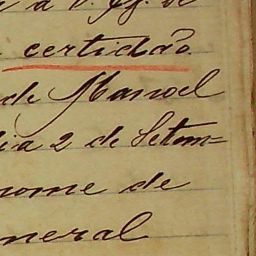 certidão
de Manoel
dia 2 de Setem=
nome de
neral